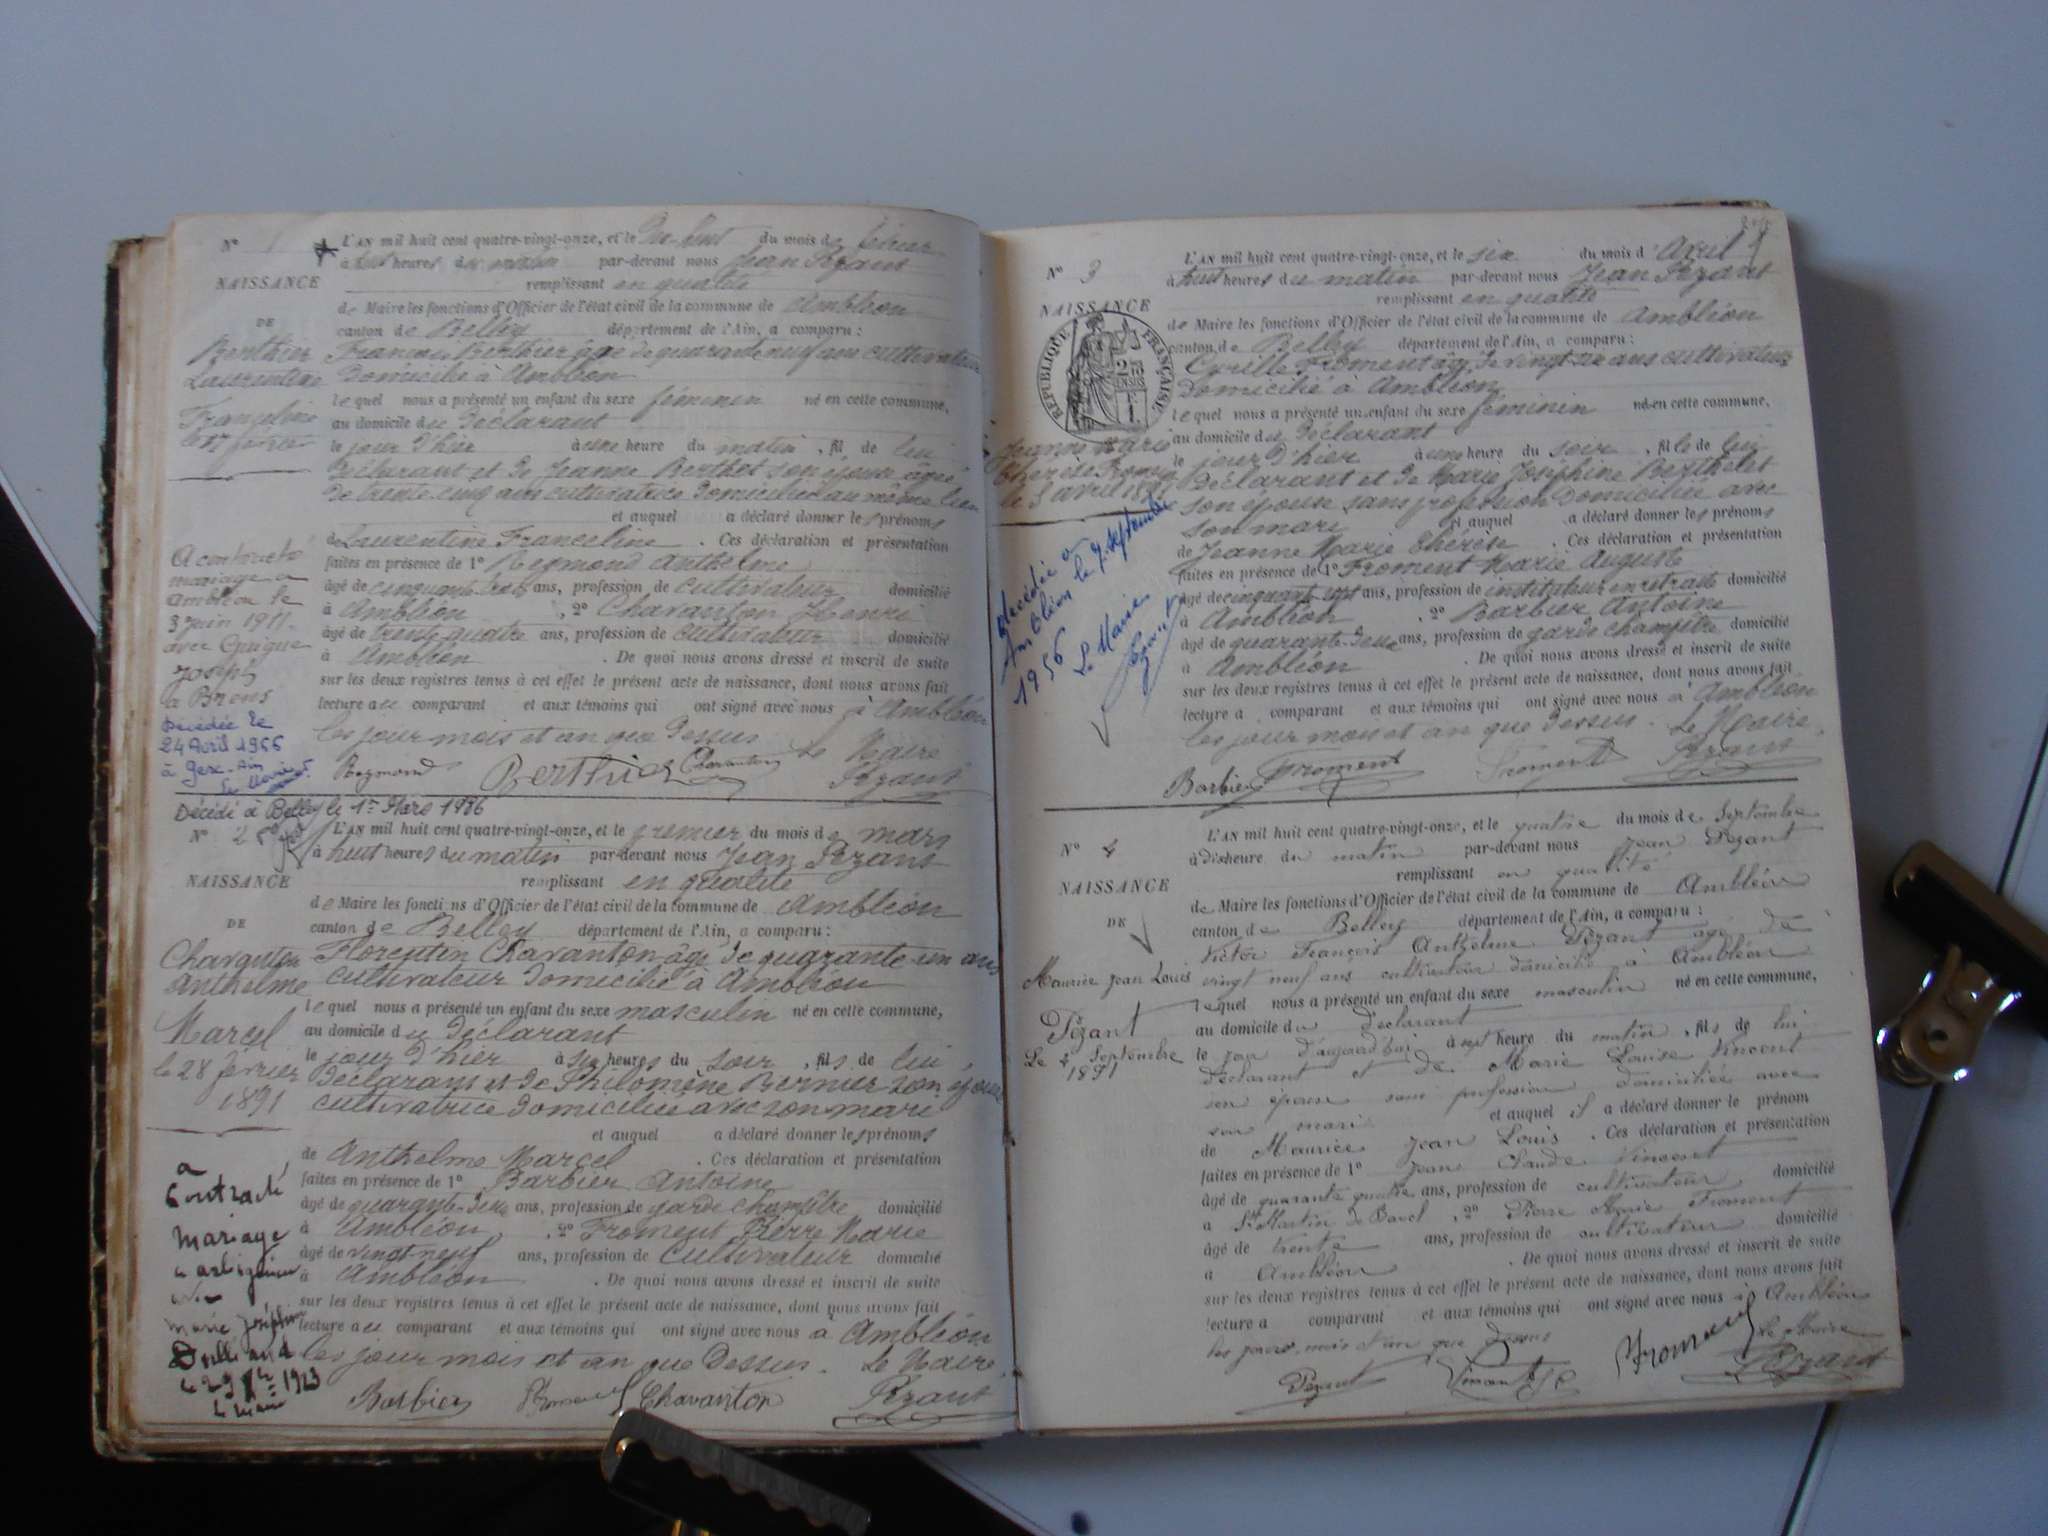 N° 1
NAISSANCE
DE
Berthier
Laurentine
Franceline
le 17 février
A contracté
mariage à
Ambléon le
3 juin 1911
avec Guigue
Joseph
à Brens
Décédée le
24 Avril 1966
à Gex-Ain
Le Maire
L'AN mil huit cent quatre-vingt-onze, et le Dix-huit du mois de février
à huit heures du matin par-devant nous Jean Pézant
remplissant en qualité
de Maire les fonctions d'Officier de l'état civil de la commune de Ambléon
canton de Belley département de l'Ain, a comparu :
François Berthier âgé de quarante neuf ans cultivateur
domicilié à Ambléon
lequel nous a présenté un enfant du sexe féminin né en cette commune,
au domicile du déclarant
le jour d'hier à une heure du matin, fil de lui
déclarant et de Jeanne Berthet son épouse âgée
de trente cinq ans cultivatrice domiciliée au même lieu
et auquel a déclaré donner les prénoms
de Laurentine Franceline. Ces déclaration et présentation
faites en présence de 1° Reymond Anthelme
âgé de cinquante trois ans, profession de cultivateur domicilié
à Ambléon, 2° Chavanton Henri
âgé de trente quatre ans, profession de cultivateur domicilié
à Ambléon. De quoi nous avons dressé et inscrit de suite
sur les deux registres tenus à cet effet le présent acte de naissance, dont nous avons fait
lecture au comparant et aux témoins qui ont signé avec nous à Ambléon
les jour mois et an que dessus Le Maire
Reymond Berthier Chavanton Pézant
Décédé à Belley le 1er Mars 1986
N° 2
NAISSANCE
DE
Chavanton
Anthelme
Marcel
le 28 février
1891
a
contracté
mariage
à
Marie Joséphine
le 29 1923
le maire
L'AN mil huit cent quatre-vingt-onze, et le premier du mois de mars
à huit heures du matin par-devant nous Jean Pézant
remplissant en qualité
de Maire les fonctions d'Officier de l'état civil de la commune de Ambléon
canton de Belley département de l'Ain, a comparu :
Florentin Chavanton âgé de quarante-un ans
cultivateur domicilié à Ambléon
lequel nous a présenté un enfant du sexe masculin né en cette commune,
au domicile du déclarant
le jour d'hier à six heures du soir, fils de lui
déclarant et de Philomène Bernier son épouse
cultivatrice domiciliée avec son mari
et auquel a déclaré donner les prénoms
de Anthelme Marcel. Ces déclaration et présentation
faites en présence de 1° Barbier Antoine
âgé de quarante-deux ans, profession de garde champêtre domicilié
à Ambléon, 2° Froment Pierre Marie
âgé de vingt-neuf ans, profession de cultivateur domicilié
à Ambléon. De quoi nous avons dressé et inscrit de suite
sur les deux registres tenus à cet effet le présent acte de naissance, dont nous avons fait
lecture au comparant et aux témoins qui ont signé avec nous à Ambléon
les jour mois et an que dessus. Le Maire
Barbier Froment Chavanton Pézant
N° 3
NAISSANCE
RÉPUBLIQUE FRANÇAISE
Jeanne Marie
Thérèse Froment
le 5 avril 1891
décédée à
Ambléon le 7 septembre
1956 Le Maire
L'AN mil huit cent quatre-vingt-onze, et le six du mois d'Avril
à huit heures du matin par-devant nous Jean Pézant
remplissant en qualité
de Maire les fonctions d'Officier de l'état civil de la commune de Ambléon
canton de Belley département de l'Ain, a comparu :
Cyrille Froment âgé de vingt-six ans cultivateur
domicilié à Ambléon
lequel nous a présenté un enfant du sexe féminin né en cette commune,
au domicile du déclarant
le jour d'hier à une heure du soir, fille de lui
déclarant et de Marie Joséphine Berthelet
son épouse sans profession domiciliée avec
son mari et auquel a déclaré donner les prénoms
de Jeanne Marie Thérèse. Ces déclaration et présentation
faites en présence de 1° Froment Marie Auguste
âgé de cinquante sept ans, profession de instituteur en retraite domicilié
à Ambléon, 2° Barbier Antoine
âgé de quarante-deux ans, profession de garde champêtre domicilié
à Ambléon. De quoi nous avons dressé et inscrit de suite
sur les deux registres tenus à cet effet le présent acte de naissance, dont nous avons fait
lecture a comparant et aux témoins qui ont signé avec nous à Ambléon
les jour mois et an que dessus. Le Maire,
Barbier Froment Froment Pézant
N° 4
NAISSANCE
DE
Maurice Jean Louis
Pézant
Le 4 Septembre
1891
L'AN mil huit cent quatre-vingt-onze, et le quatre du mois de Septembre
à dix heure du matin par-devant nous Jean Pézant
remplissant en qualité
de Maire les fonctions d'Officier de l'état civil de la commune de Ambléon
canton de Belley département de l'Ain, a comparu :
Victor François Anthelme Pézant âgé de
vingt neuf ans cultivateur domicilié à Ambléon
lequel nous a présenté un enfant du sexe masculin né en cette commune,
au domicile du déclarant
le jour d'aujourd'hui à sept heure du matin, fils de lui
déclarant et de Marie Louise Vincent
son épouse sans profession domiciliée avec
son mari et auquel il a déclaré donner le prénom
de Maurice Jean Louis. Ces déclaration et présentation
faites en présence de 1° Jean Claude Vincent
âgé de quarante quatre ans, profession de cultivateur domicilié
à St Martin de Bavel, 2° Pierre Marie Froment
âgé de trente ans, profession de cultivateur domicilié
à Ambléon. De quoi nous avons dressé et inscrit de suite
sur les deux registres tenus à cet effet le présent acte de naissance, dont nous avons fait
lecture a comparant et aux témoins qui ont signé avec nous à Ambléon
les jours, mois et an que dessus Le Maire
Pézant Vincent J C Froment Pézant